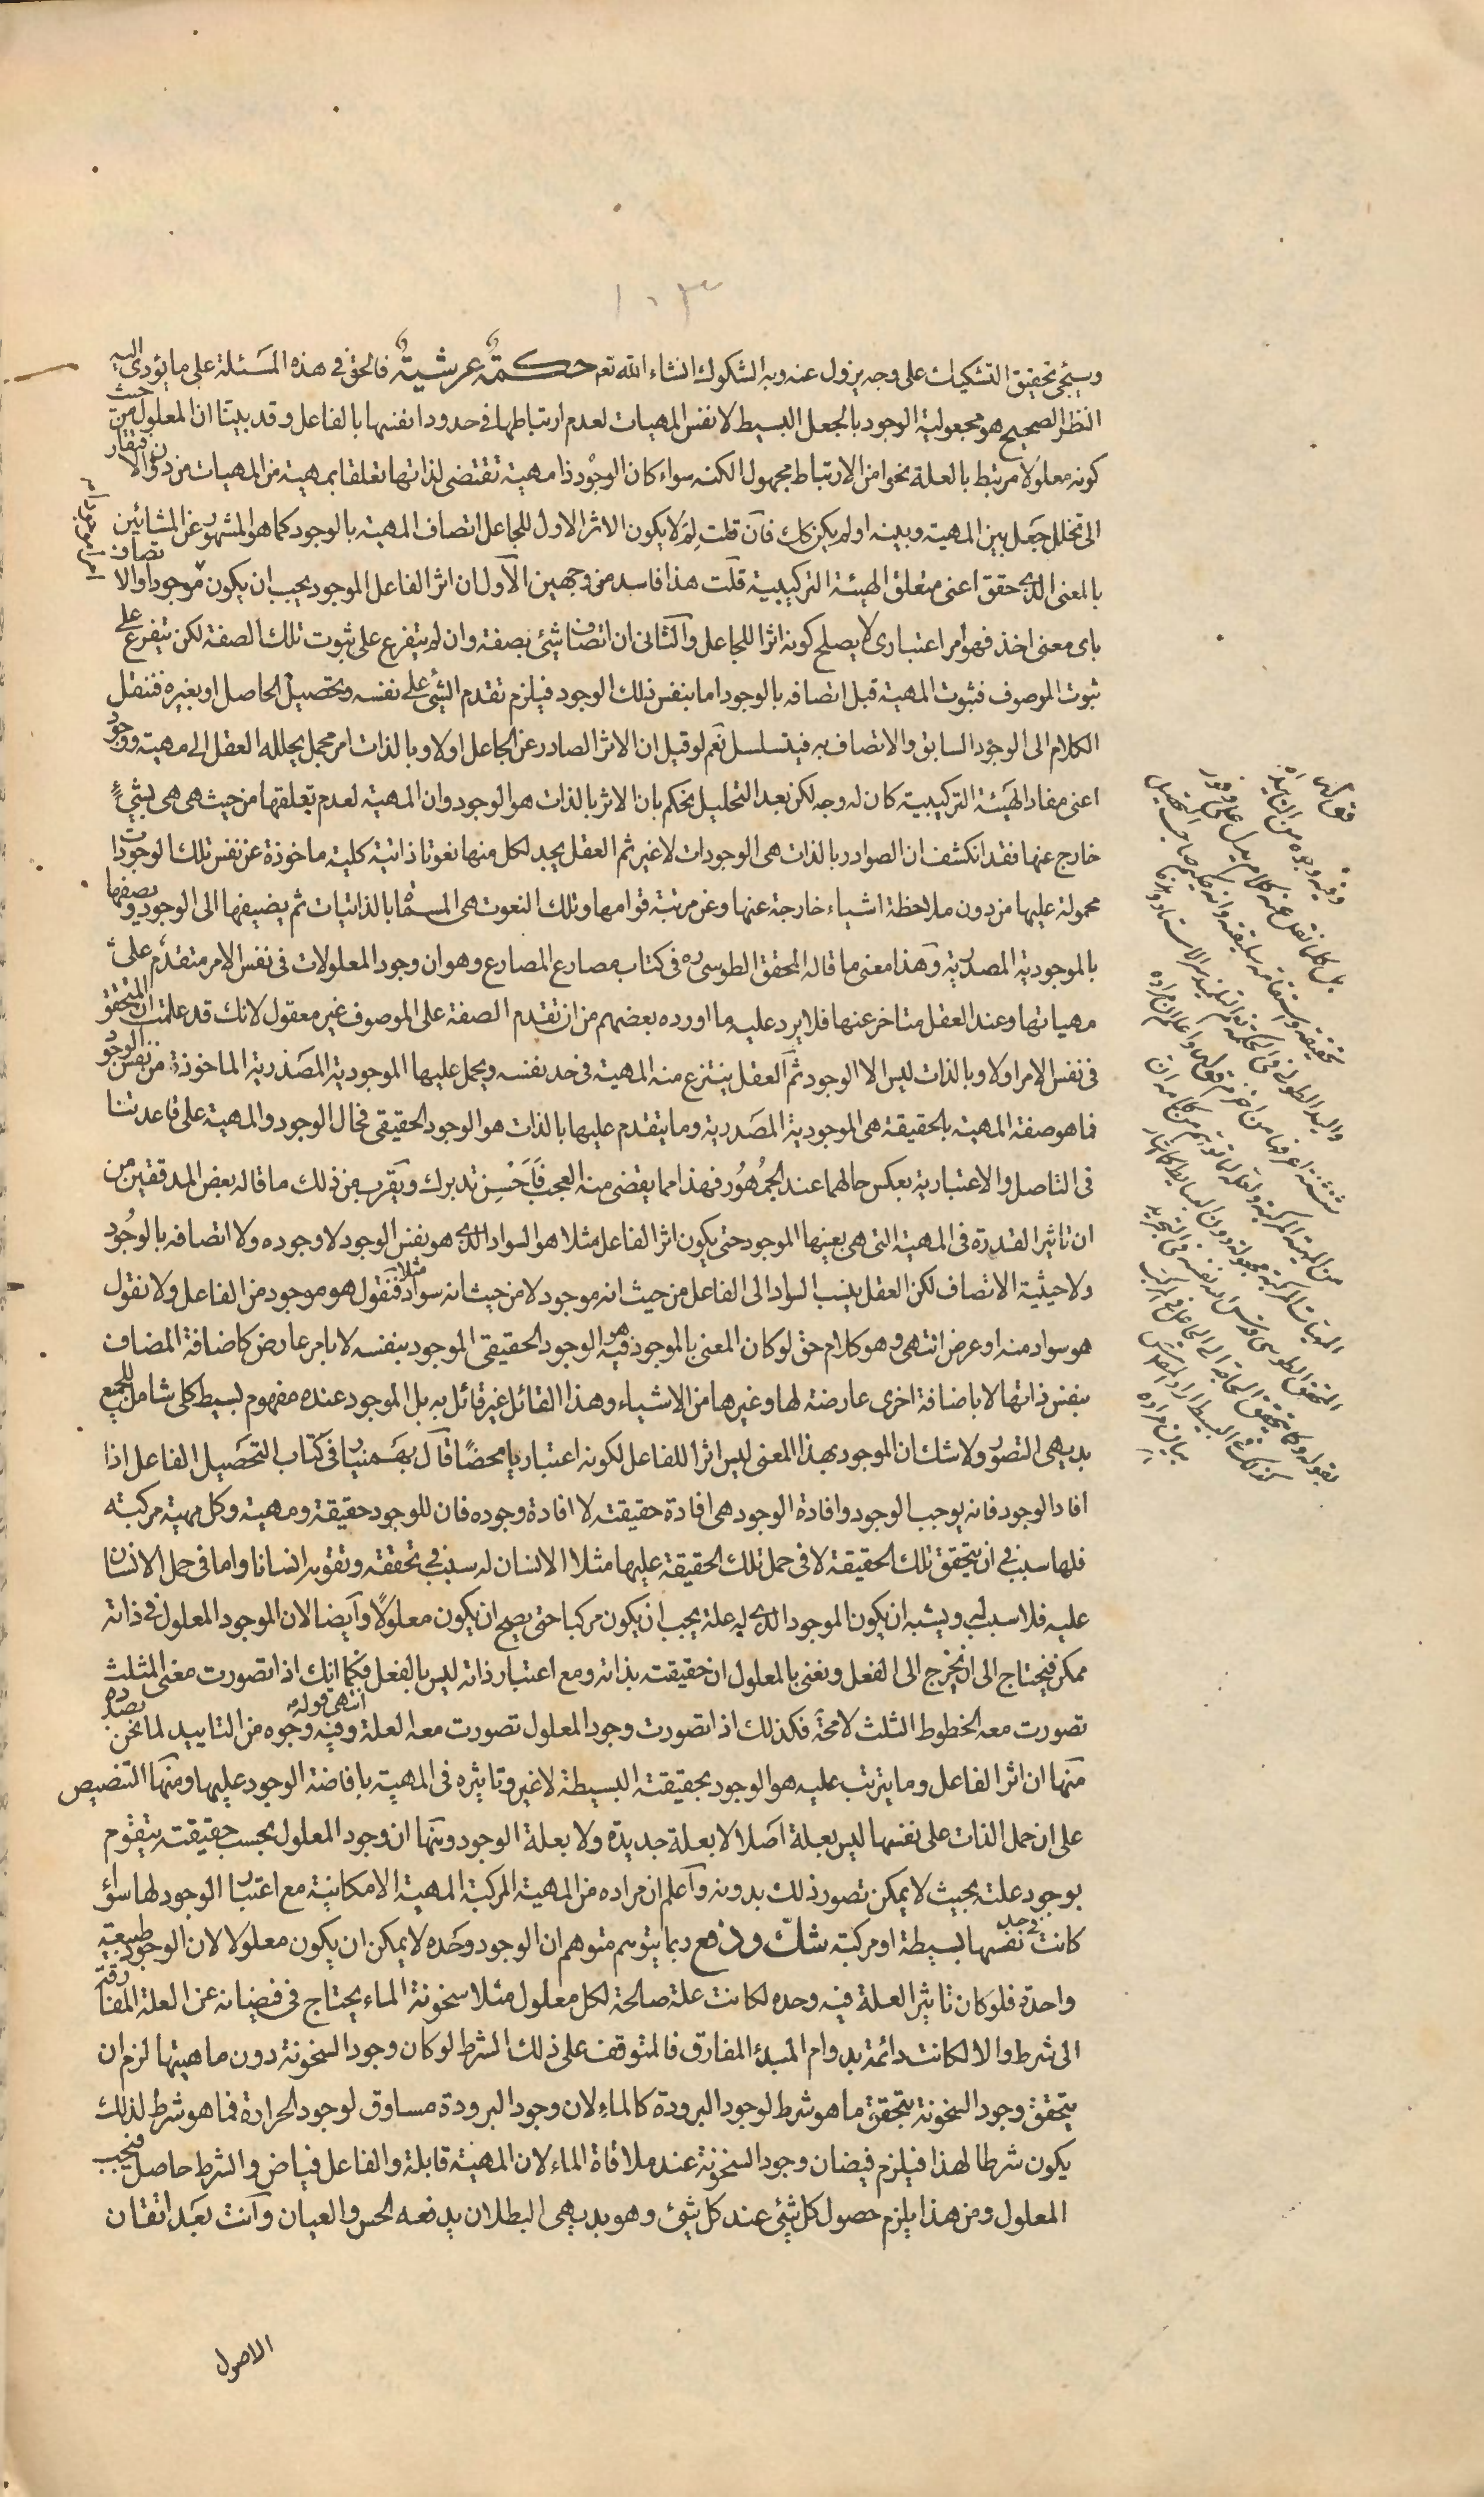 ١٠٣
وسيجئ تحقيق التشكيك على وجه يزول عنه وبه الشكوك انشاء الله تعـ حكمة عرشية فالحق في هذه المسئلة على ما يؤدى اليه
النظر الصحيح هو مجعولية الوجود بالجعل البسيط لا نفس المهيات لعدم ارتباطها في حدود انفسها بالفاعل وقد بيتنا ان المعلول من حيث
كونه معلولا مرتبط بالعلة نحوا من الارتباط مجهول الكنه سواء كان الوجود ذا مهية تقتضى لذاتها تعلقا بمهية من المهيات من دون الافتقار
الى تخلل جعل بين المهية وبينه او لم يكن كك فان قلت لم لا يكون الاثر الاول للجاعل اتصاف المهية بالوجود كما هو المشهور عن المشائين
بالمعنى الذى حقق اعنى متعلق الهيئة التركيبية قلت هذا فاسد من وجهين الاول ان اثر الفاعل الموجود يجب ان يكون موجودا والاتصاف
باى معنى اخذ فهو امر اعتبارى لا يصلح كونه اثرا للجاعل والثانى ان اتصاف شيئ بصفة وان لم يتفرع على ثبوت تلك الصفة لكن يتفرع على
ثبوت الموصوف فثبوت المهية قبل اتصافه بالوجود اما بنفس ذلك الوجود فيلزم تقدم الشئ على نفسه وتحصيل الحاصل او بغيره فننقل
الكلام الى الوجود السابق والاتصاف به فيتسلسل نعم لو قيل ان الاثر الصادر عن الجاعل اولا وبالذات امر مجمل يحلله العقل الى مهية ووجود
اعنى مفاد الهيئة التركيبية كان له وجه لكن بعد التحليل نحكم بان الاثر بالذات هو الوجود وان المهية لعدم تعلقها من حيث هى هى بشئ
خارج عنها فقد انكشف ان الصوادر بالذات هى الوجودات لا غير ثم العقل يجد لكل منها نعوتا ذاتية كلية ماخوذة عن نفس تلك الوجودات
محمولة عليها من دون ملاحظة اشياء خارجة عنها وعن مرتبة قوامها وتلك النعوت هى المسماة بالذاتيات ثم يضيفها الى الوجود ويصفها
بالموجودية المصدرية وهذا معنى ما قاله المحقق الطوسى ره فى كتاب مصارع المصارع وهو ان وجود المعلولات فى نفس الامر متقدم على
مهياتها وعند العقل متاخر عنها فلا يرد عليه ما اورده بعضهم من ان تقدم الصفة على الموصوف غير معقول لانك قد علمت ان المتحقق
فى نفس الامر اولا وبالذات ليس الا الوجود ثم العقل ينتزع منه المهية فى حد نفسه ويحمل عليها الموجودية المصدرية الماخوذة من نفس الوجود
فما هو صفة المهية بالحقيقة هى الموجودية المصدرية وما يتقدم عليها بالذات هو الوجود الحقيقى فحال الوجود والمهية على قاعدتنا
فى التاصل والاعتبارية بعكس حالهما عند الجمهور فهذا مما يقضى منه العجب فاحسن تدبرك ويقرب من ذلك ما قاله بعض المدققين من
ان تاثير القدرة فى المهية التى هى بعينها الموجود حتى يكون اثر الفاعل مثلا هو السواد الذى هو نفس الوجود لا وجوده ولا اتصافه بالوجود
ولا حيثية الاتصاف لكن العقل ينسب السواد الى الفاعل من حيث انه موجود لا من حيث انه سواد مثلا فنقول هو موجود من الفاعل ولا نقول
هو سواد منه او عرض انتهى وهو كلام حق لو كان المعنى بالموجود فيه هو الوجود الحقيقى الموجود بنفسه لا بامر عارض كاضافة المضاف
بنفس ذاتها لا باضافة اخرى عارضة لها وغيرها من الاشياء وهذا القائل غير قائل به بل الموجود عنده مفهوم بسيط كلى شامل للجميع
بديهى التصور ولا شك ان الموجود بهذا المعنى ليس اثرا للفاعل لكونه اعتباريا محضا قال بهمنيار فى كتاب التحصيل الفاعل اذا
افاد الوجود فانه يوجب الوجود وافادة الوجود هى افادة حقيقته لا افادة وجوده فان للوجود حقيقة ومهية وكل مهية مركبة
فلها سبب في ان يتحقق تلك الحقيقة لا فى حمل تلك الحقيقة عليها مثلا الانسان له سبب في تحققه وتقومه انسانا واما فى حمل الانسان
عليه فلا سبب له ويشبه ان يكون الموجود الذى له علة يجب ان يكون مركبا حتى يصح ان يكون معلولا وايضا لان الموجود المعلول فى ذاته
ممكن فيحتاج الى ان يخرج الى الفعل ونعنى بالمعلول ان حقيقته بذاته ومع اعتبار ذاته ليس بالفعل فكما انك اذا تصورت معنى المثلث
تصورت معه الخطوط الثلث لا محة فكذلك اذا تصورت وجود المعلول تصورت معه العلة انتهى قوله وفيه وجوه من التاييد لما نحن بصدده
منها ان اثر الفاعل وما يترتب عليه هو الوجود بحقيقته البسيطة لا غير وتاثيره فى المهية بافاضة الوجود عليها ومنها التنصيص
على ان حمل الذات على نفسها ليس بعلة اصلا لا بعلة جديدة ولا بعلة الوجود ومنها ان وجود المعلول بحسب حقيقته يتقوم
بوجود علته بحيث لا يمكن تصور ذلك بدونه واعلم ان مراده من المهية المركبة المهية الامكانية مع اعتبار الوجود لها سواء
كانت فى حد نفسها بسيطة او مركبة شك ودفع ربما يتوهم متوهم ان الوجود وحده لا يمكن ان يكون معلولا لان الوجود طبيعة
واحدة فلو كان تاثير العلة فيه وحده لكانت علة صالحة لكل معلول مثلا سخونة الماء يحتاج فى فيضانه عن العلة المفارقة
الى شرط والا لكانت دائمة بدوام المبدء المفارق فالمتوقف على ذلك الشرط لو كان وجود السخونة دون ماهيتها لزم ان
يتحقق وجود السخونة بتحقق ما هو شرط لوجود البرودة كالماء لان وجود البرودة مساوق لوجود الحرارة فما هو شرط لذلك
يكون شرطا لهذا فيلزم فيضان وجود السخونة عند ملاقاة الماء لان المهية قابلة والفاعل فياض والشرط حاصل فيجب
المعلول ومن هذا يلزم حصول كل شئ عند كل شئ وهو بديهى البطلان يدفعه الحس والعيان وانت بعد اتقان
الاصول
قوله
وفيه وجوه من التاييد اه